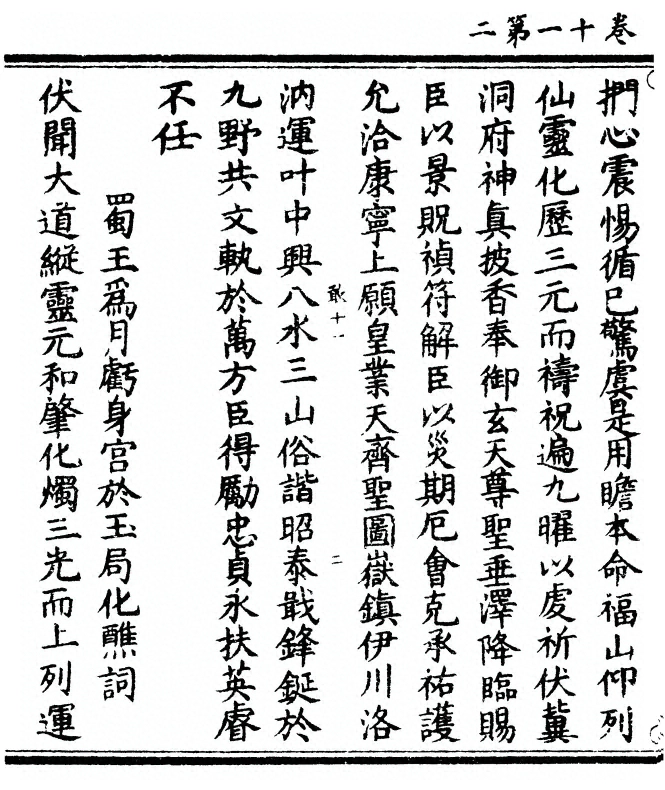 卷十一第二
捫心震惕循已驚虞是用瞻本命福山仰列
仙靈化歷三元而禱祝遍九曜以虔祈伏冀
洞府神真披香奉御玄天尊聖垂澤降臨賜
臣以景貺禎符解臣以災期厄會克承祐護
允洽康寧上願皇業天齊聖圖嶽鎮伊川洛
汭運叶中興八水三山俗諧昭泰戢鋒鋋於
敢十一
二
九野共文軌於萬方臣得勵忠貞永扶英睿
不任
蜀王為月虧身宮於玉局化醮詞
伏聞大道縱靈元和肇化燭三光而上列運